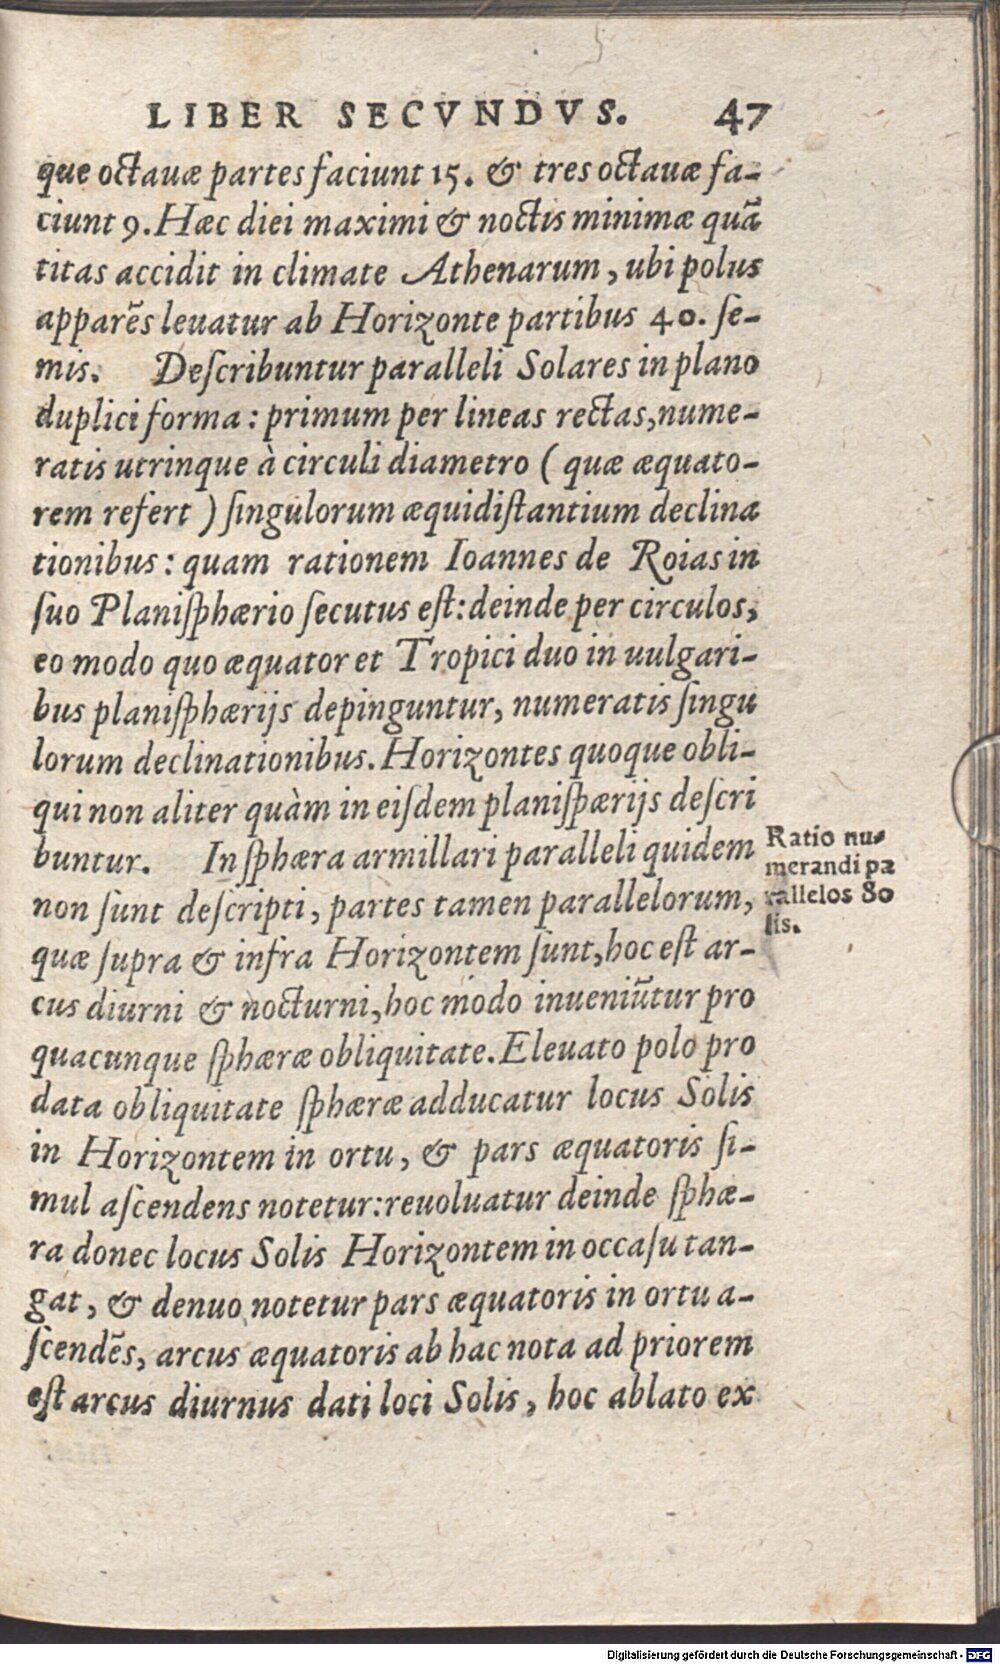 LIBER SECVNDVS. 47
que octauæ partes faciunt 15. & tres octauæ fa-
ciunt 9. Hæc diei maximi & noctis minimæ quã
titas accidit in climate Athenarum, ubi polus
apparẽs leuatur ab Horizonte partibus 40. ſe-
mis. Deſcribuntur paralleli Solares in plano
duplici forma: primum per lineas rectas, nume-
ratis utrinque à circuli diametro (quæ æquato-
rem refert) ſingulorum æquidiſtantium declina
tionibus: quam rationem Ioannes de Roias in
ſuo Planiſphærio ſecutus eſt: deinde per circulos,
eo modo quo æquator et Tropici duo in uulgari-
bus planiſphærijs depinguntur, numeratis ſingu
lorum declinationibus. Horizontes quoque obli-
qui non aliter quàm in eiſdem planiſpærijs deſcri
buntur. In ſphæra armillari paralleli quidem
non ſunt deſcripti, partes tamen parallelorum,
quæ ſupra & infra Horizontem ſunt, hoc eſt ar-
cus diurni & nocturni, hoc modo inueniũtur pro
quacunque ſphæræ obliquitate. Eleuato polo pro
data obliquitate ſphæræ adducatur locus Solis
in Horizontem in ortu, & pars æquatoris ſi-
mul aſcendens notetur: reuoluatur deinde ſphæ-
ra donec locus Solis Horizontem in occaſu tan-
gat, & denuo notetur pars æquatoris in ortu a-
ſcendẽs, arcus æquatoris ab hac nota ad priorem
eſt arcus diurnus dati loci Solis, hoc ablato ex
Ratio nu-
merandi pa
rallelos So
lis.
Digitalisierung gefördert durch die Deutsche Forschungsgemeinschaft - DFG